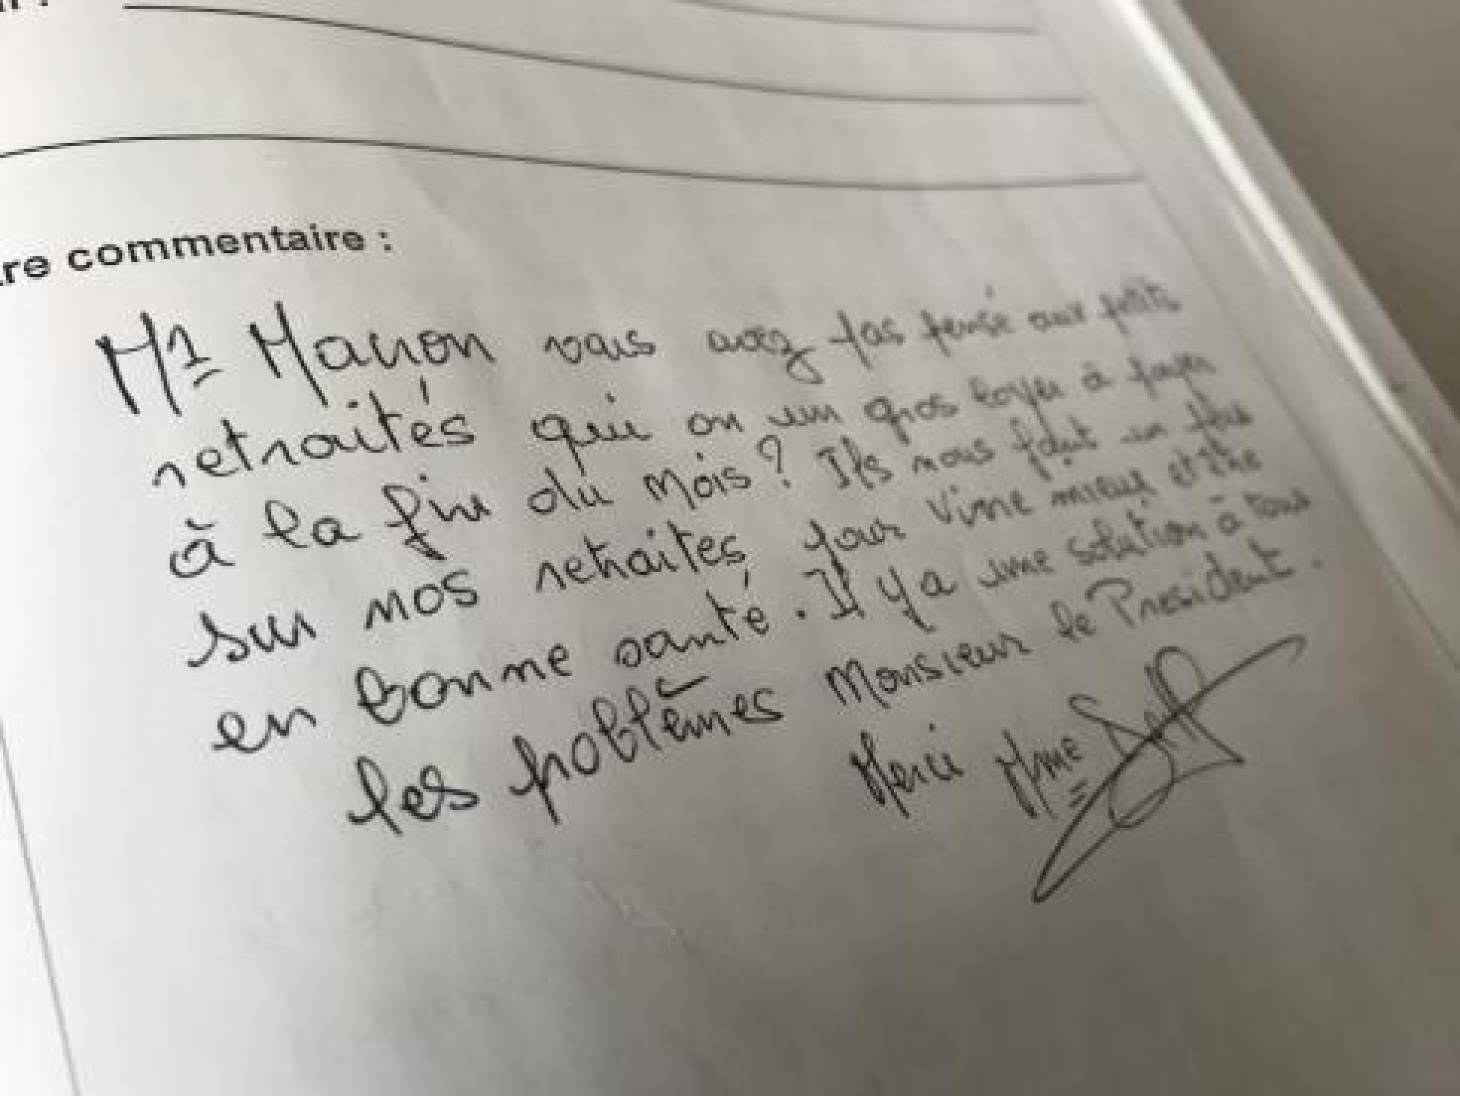 re commentaire :
Mr Macron vous avez pas pensé aux petits
retraités qui on un gros loyer à payer
à la fin du mois? Ils nous faut un plus
sur nos retraites, pour vivre mieux et être
en bonne santé. Il y a une solution à tous
les problèmes Monsieur le President.
Merci Mme